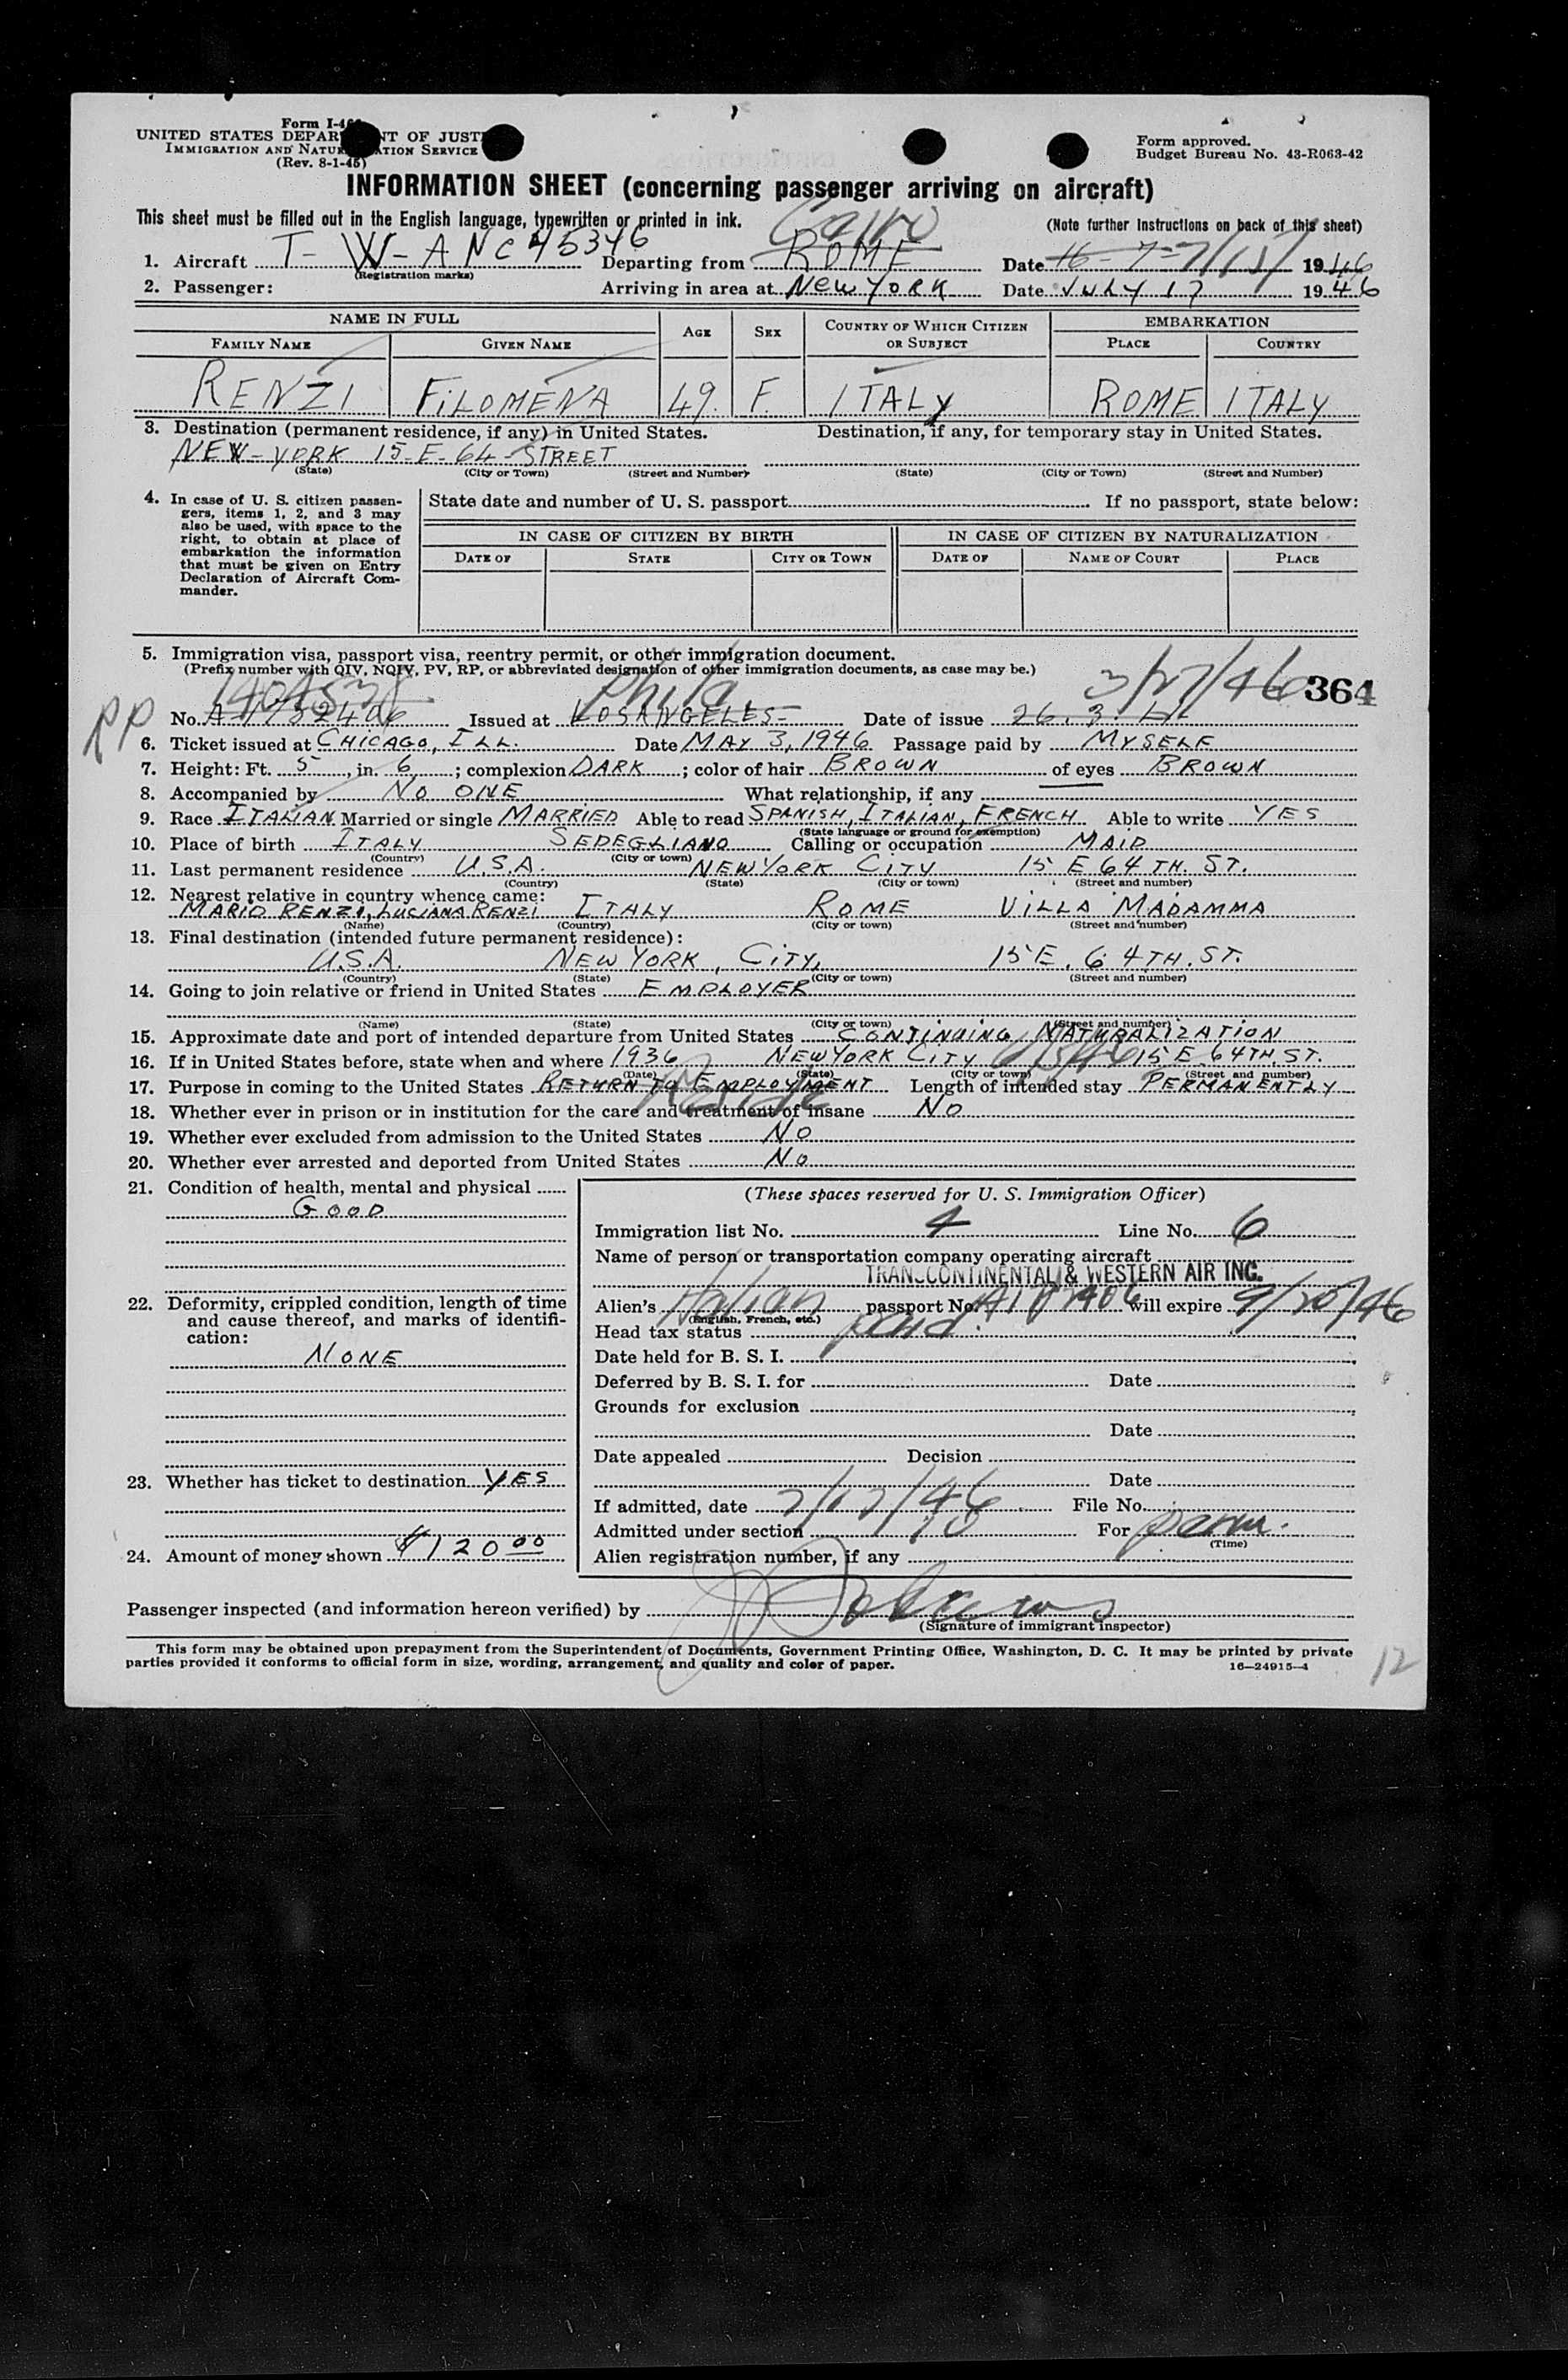 Form I-46
UNITED STATES DEPAR NT OF JUST
IMMIGRATION AND NATUR ATION SERVICE
(Rev. 8-1-45)
Form approved.
Budget Bureau No. 43-R063-42
INFORMATION SHEET (concerning passenger arriving on aircraft)
This sheet must be filled out in the English language, typewritten or printed in ink. (Note further instructions on back of this sheet)
Cairo
1. Aircraft T-W-A NC 45346 Departing from ROME Date 16-7- 7/15/ 1946
(Registration marks)
2. Passenger: Arriving in area at NEW YORK Date JULY 17 1946
NAME IN FULL AGE SEX COUNTRY OF WHICH CITIZEN OR SUBJECT EMBARKATION
FAMILY NAME GIVEN NAME PLACE COUNTRY
RENZI FILOMENA 49. F. ITALY ROME ITALY
3. Destination (permanent residence, if any) in United States. Destination, if any, for temporary stay in United States.
NEW-YORK 15-E-64-STREET
(State) (City or Town) (Street and Number) (State) (City or Town) (Street and Number)
4. In case of U. S. citizen passengers, items 1, 2, and 3 may also be used, with space to the right, to obtain at place of embarkation the information that must be given on Entry Declaration of Aircraft Commander.
State date and number of U. S. passport If no passport, state below:
IN CASE OF CITIZEN BY BIRTH IN CASE OF CITIZEN BY NATURALIZATION
DATE OF STATE CITY OR TOWN DATE OF NAME OF COURT PLACE
5. Immigration visa, passport visa, reentry permit, or other immigration document.
(Prefix number with QIV, NQIV, PV, RP, or abbreviated designation of other immigration documents, as case may be.)
Phila 3/27/46 364
RP No. Issued at LOS ANGELES- Date of issue 26.3.
6. Ticket issued at CHICAGO, ILL. Date MAY 3, 1946 Passage paid by MYSELF
7. Height: Ft. 5, in. 6; complexion DARK; color of hair BROWN of eyes BROWN
8. Accompanied by NO ONE What relationship, if any
9. Race ITALIAN Married or single MARRIED Able to read SPANISH, ITALIAN, FRENCH Able to write YES
(State language or ground for exemption)
10. Place of birth ITALY SEDEGLIANO Calling or occupation MAID
(Country) (City or town)
11. Last permanent residence U.S.A. NEW YORK CITY 15 E 64 TH. ST.
(Country) (State) (City or town) (Street and number)
12. Nearest relative in country whence came:
MARIO RENZI, LUCIANA RENZI ITALY ROME VILLA MADAMMA
(Name) (Country) (City or town) (Street and number)
13. Final destination (intended future permanent residence):
U.S.A. NEW YORK, CITY, 15 E. 64TH. ST.
(Country) (State) (City or town) (Street and number)
14. Going to join relative or friend in United States EMPLOYER
(Name) (State) (City or town) (Street and number)
15. Approximate date and port of intended departure from United States CONTINUING NATURALIZATION
16. If in United States before, state when and where 1936 NEW YORK CITY 15 E 64TH ST.
(Date) (State) (City or town) (Street and number)
17. Purpose in coming to the United States RETURN TO EMPLOYMENT Length of intended stay PERMANENTLY
Reside
18. Whether ever in prison or in institution for the care and treatment of insane NO
19. Whether ever excluded from admission to the United States NO
20. Whether ever arrested and deported from United States NO
21. Condition of health, mental and physical
GOOD
22. Deformity, crippled condition, length of time and cause thereof, and marks of identification:
NONE
23. Whether has ticket to destination YES
24. Amount of money shown $120 00
(These spaces reserved for U. S. Immigration Officer)
Immigration list No. 4 Line No. 6
Name of person or transportation company operating aircraft
TRANSCONTINENTAL & WESTERN AIR INC.
Alien's Italian passport No. will expire 9/20/46
(English, French, etc.)
Head tax status paid.
Date held for B. S. I.
Deferred by B. S. I. for Date
Grounds for exclusion
Date
Date appealed Decision
Date
If admitted, date 7/17/46 File No.
Admitted under section For perm.
(Time)
Alien registration number, if any
Passenger inspected (and information hereon verified) by
(Signature of immigrant inspector)
This form may be obtained upon prepayment from the Superintendent of Documents, Government Printing Office, Washington, D. C. It may be printed by private
parties provided it conforms to official form in size, wording, arrangement, and quality and color of paper. 16—24915-1
12